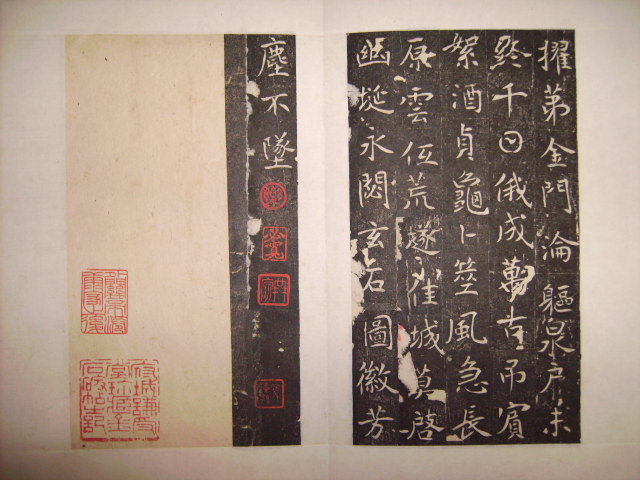 擢第金門淪軀泉戶未
終千日俄成萬古吊賓
絮酒貞龜卜筮風急長
原雲低荒遂佳城莫啓
幽埏永閟玄石圖徽芳
塵不墜